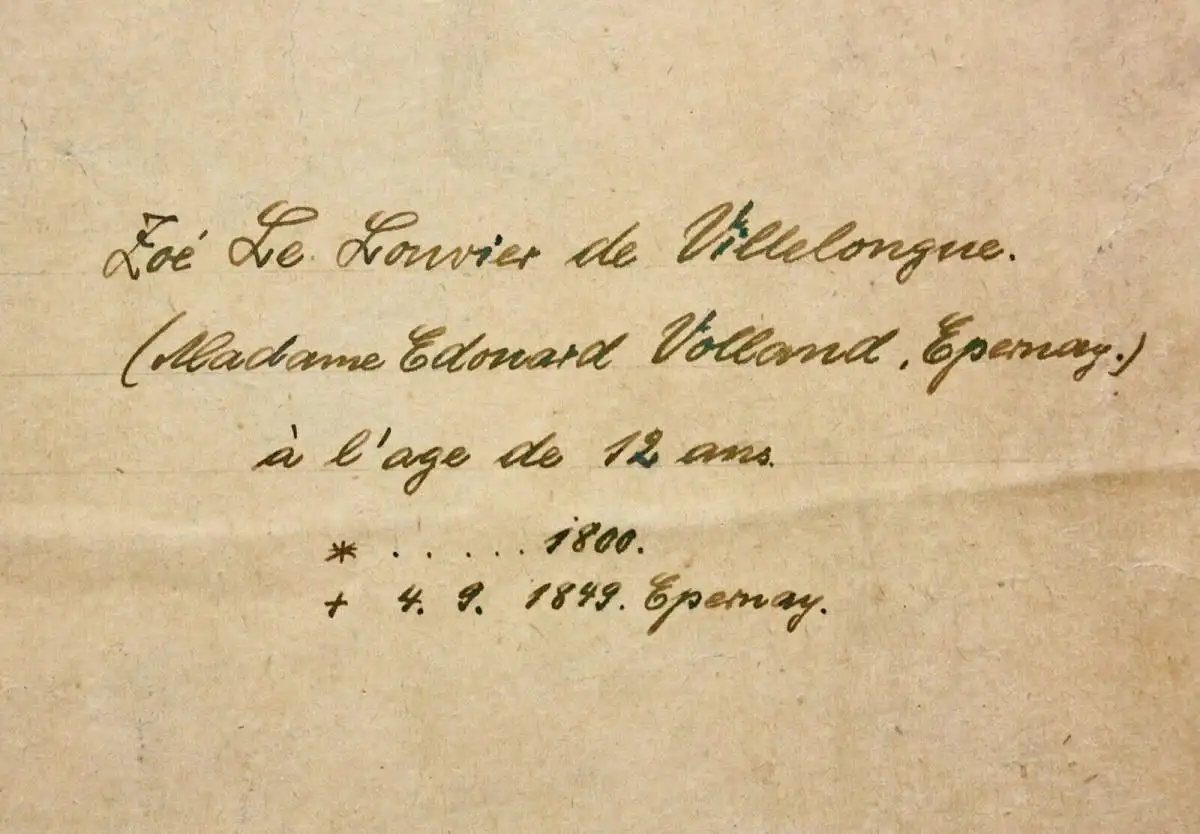 Zoé Le Louvier de Villelongue.
(Madame Edouard Volland, Epernay.)
à l'age de 12 ans.
* . . . . . 1800.
+ 4. 9. 1849. Epernay.